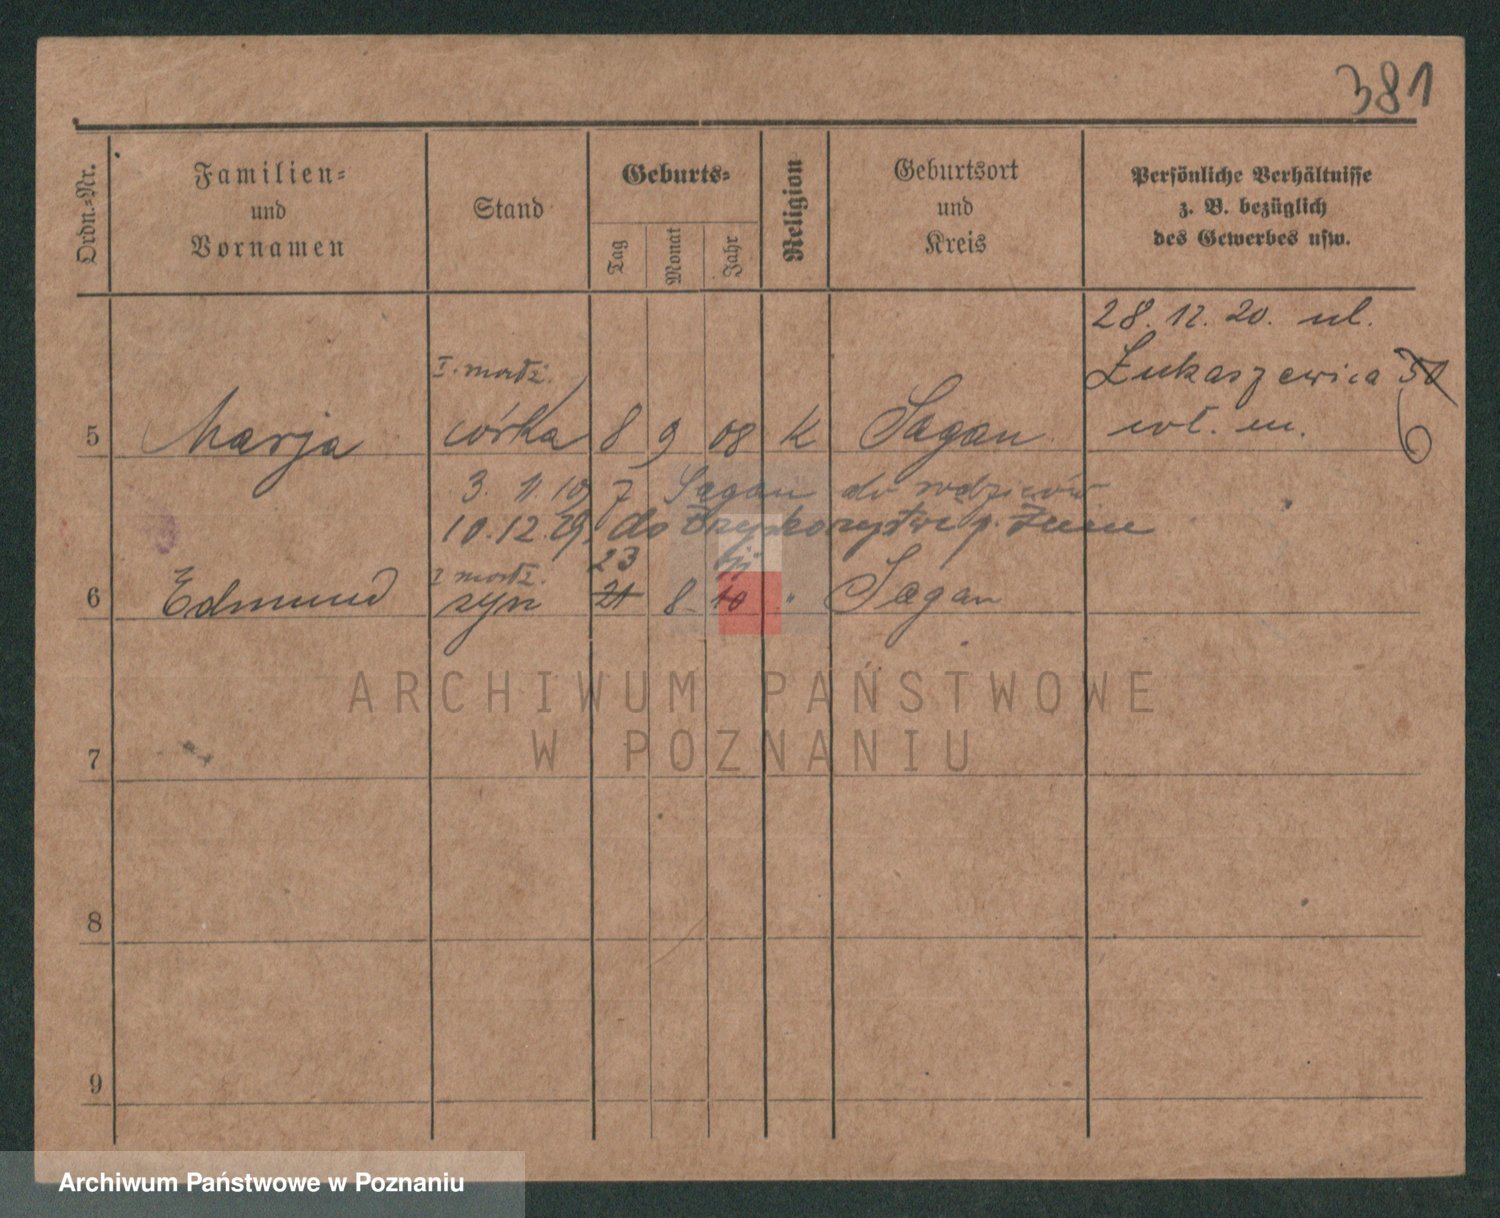 381
Ordn.-Nr.
Familien-
und
Vornamen
Stand
Geburts-
Tag
Monat
Jahr
Religion
Geburtsort
und
Kreis
Persönliche Verhältnisse
z. B. bezüglich
des Gewerbes usw.
28. 12. 20. ul.
Łukaszewica 50
6
wł. m.
I. małż.
5 Marja córka 8 9 08 K Sagan
3. 11. 19 z Sagan do rodziców
10. 12. 29. do
23
I małż.
6 Edmund syn 21 8 10 " Sagan
7
8
9
ARCHIWUM PAŃSTWOWE
W POZNANIU
Archiwum Państwowe w Poznaniu